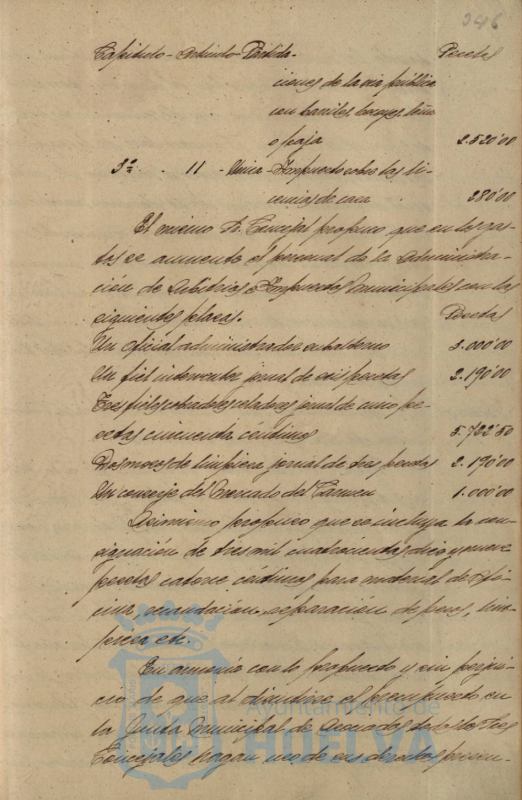 346
Capítulo - Artículo - Partida - Pesetas
ciones de la vía pública
con barriles, bocoyes, leña
o paja 2.520'00
3º - 11 - Única - Impuesto sobre las li-
cencias de caza 380'00
El mismo Sr. Concejal propuso que en los gas-
tos se aumente el personal de la administra-
ción de Arbitrios e Impuestos Municipales con las
siguientes plazas. Pesetas
Un oficial administrador subalterno 3.000'00
Un fiel interventor jornal de seis pesetas 2.190'00
Tres fieles cobradores celadores jornal de cinco pe-
setas cincuenta céntimos
Dos mozos de limpieza jornal de tres pesetas 2.190'00
Un conserje del Mercado del Carmen 1.000'00
Asimismo propuso que se incluya la con-
signación de tres mil cuatrocientas diez y nueve
pesetas catorce céntimos para material de ofi-
cina, recaudación, reparación de pesos, lim-
pieza etc.
En armonía con lo propuesto y sin perjui-
cio de que al discutirse el presupuesto en
la Junta Municipal de Asociados todos los Sres
Concejales hagan uso de sus derechos presen-
Ayuntamiento de
HUELVA